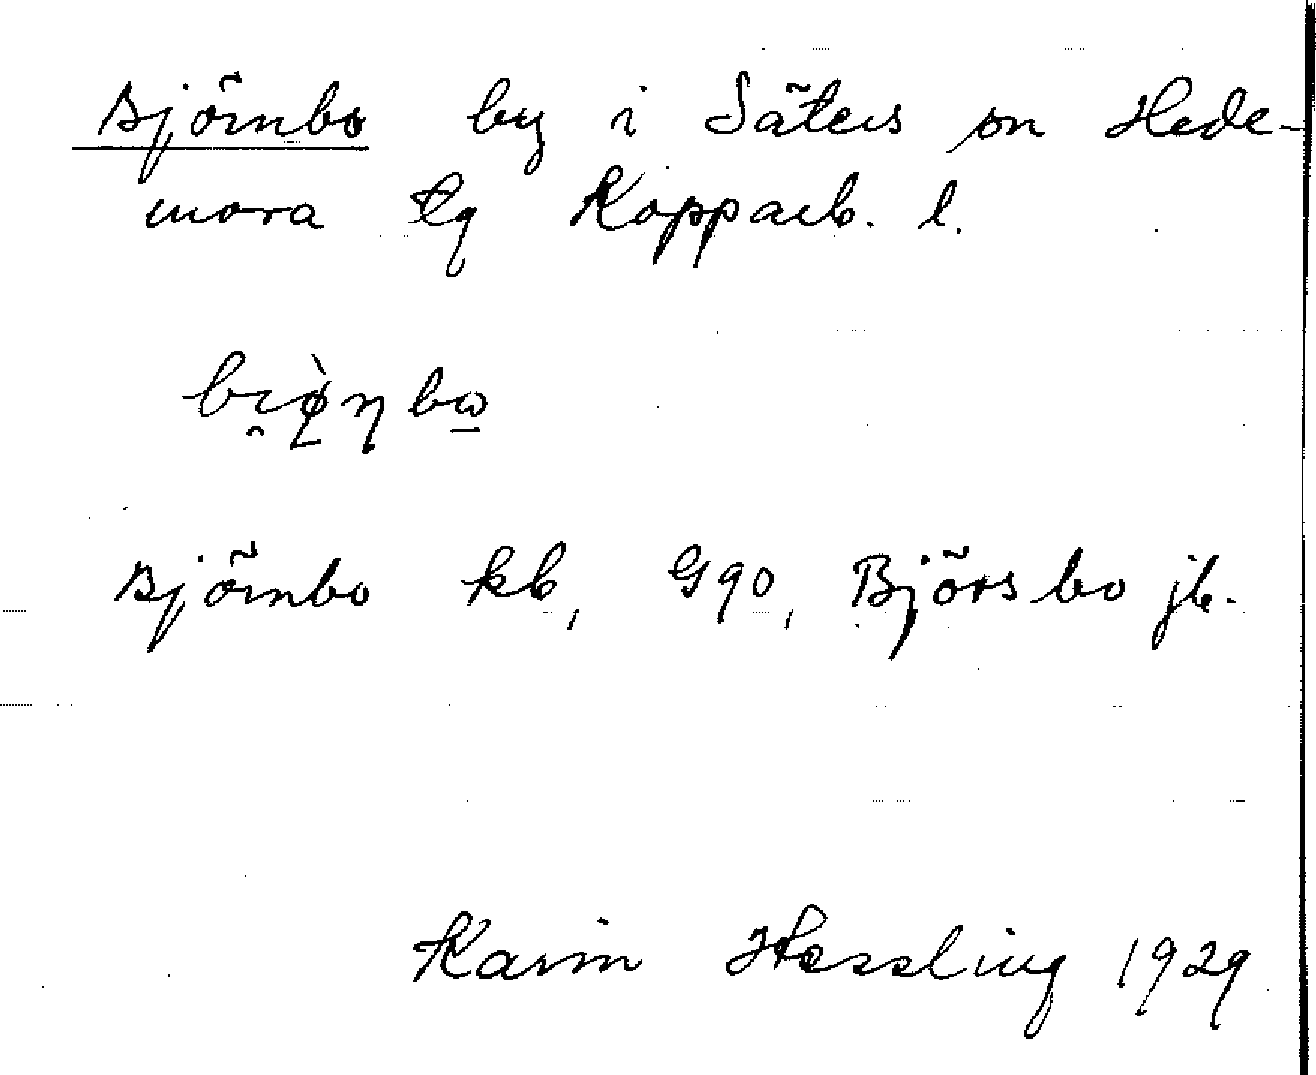 Björnbo by i Säters sn Hede-
mora tg Kopparb. l.
bi̯ø̨̀ŋbω̱
Björnbo kb, G90, Björsbo jb.
Karin Hessling 1929